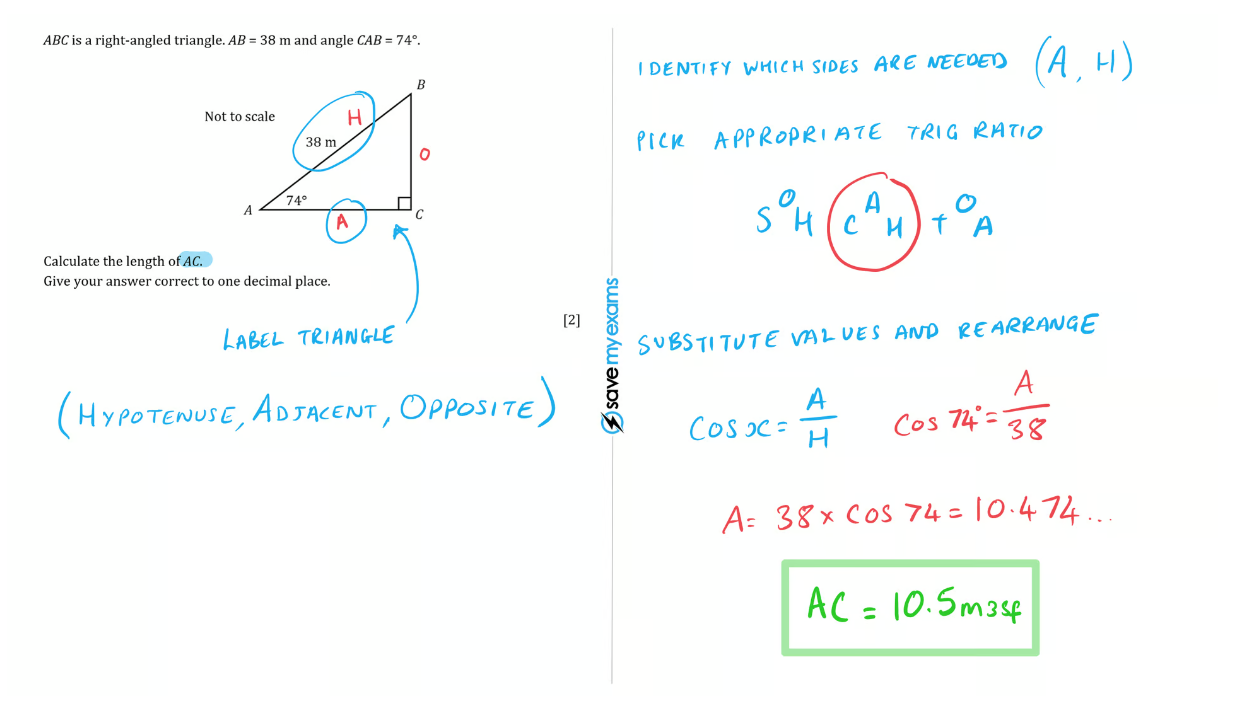 ABC is a right-angled triangle. AB = 38 m and angle CAB = 74°.
B
Not to scale
H
38 m
O
74°
A
A
C
Calculate the length of AC.
Give your answer correct to one decimal place.
[2]
LABEL TRIANGLE
(HYPOTENUSE, ADJACENT, OPPOSITE)
save my exams
IDENTIFY WHICH SIDES ARE NEEDED (A, H)
PICK APPROPRIATE TRIG RATIO
S O H C A H T O A
SUBSTITUTE VALUES AND REARRANGE
COS x = A/H COS 74° = A/38
A = 38 x COS 74 = 10.474...
AC = 10.5m 3sf